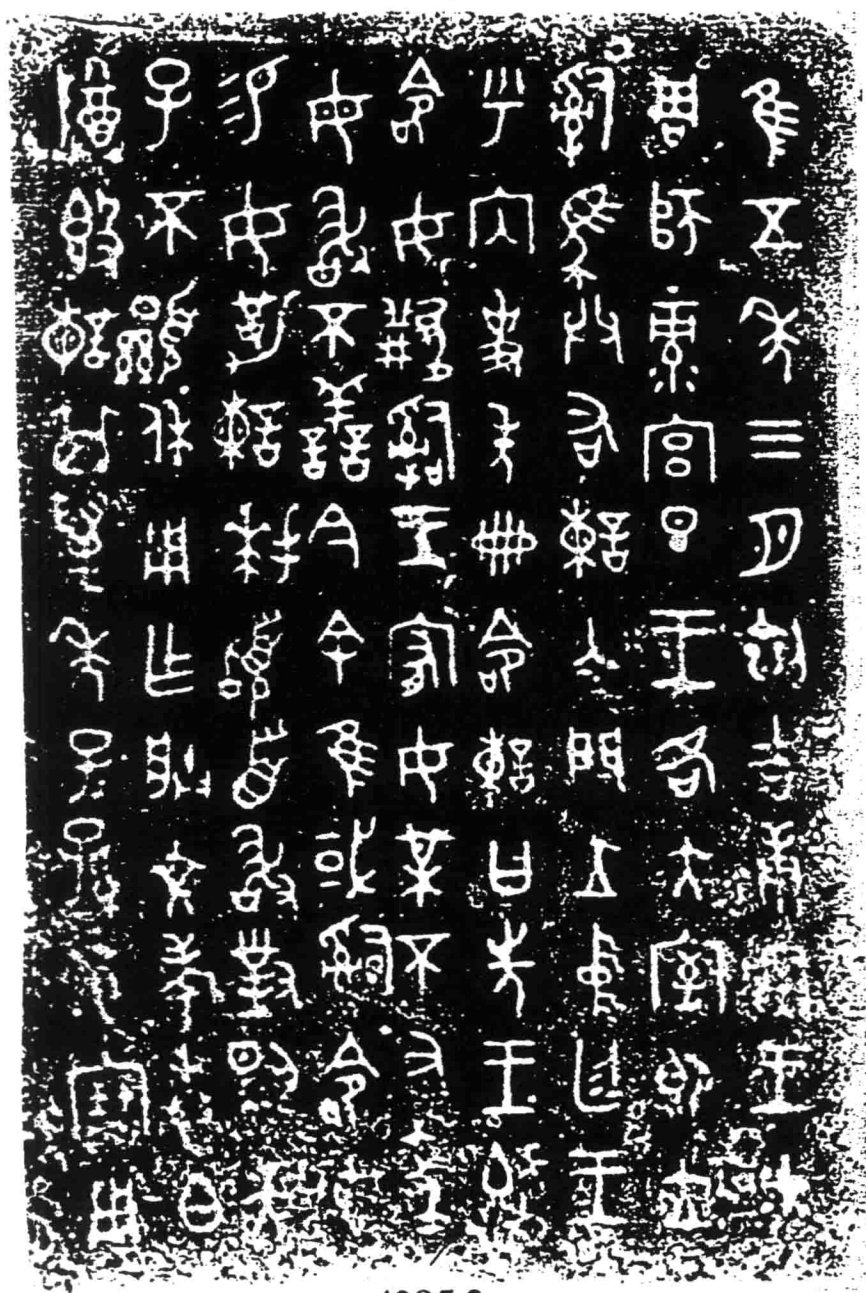 隹五年三月初吉庚寅王才
周師彔宮旦王各大室即立
𤔲馬共右諫入門立中廷王
乎內史冊令諫曰先王既
令女𤔲王宥女某不又聞
母敢不善今余隹或𤔲令女
易女勒諫拜𩒨首敢對揚
子不顯休用乍朕文考叀白
𣪘諫其萬年子子孫孫永寶用